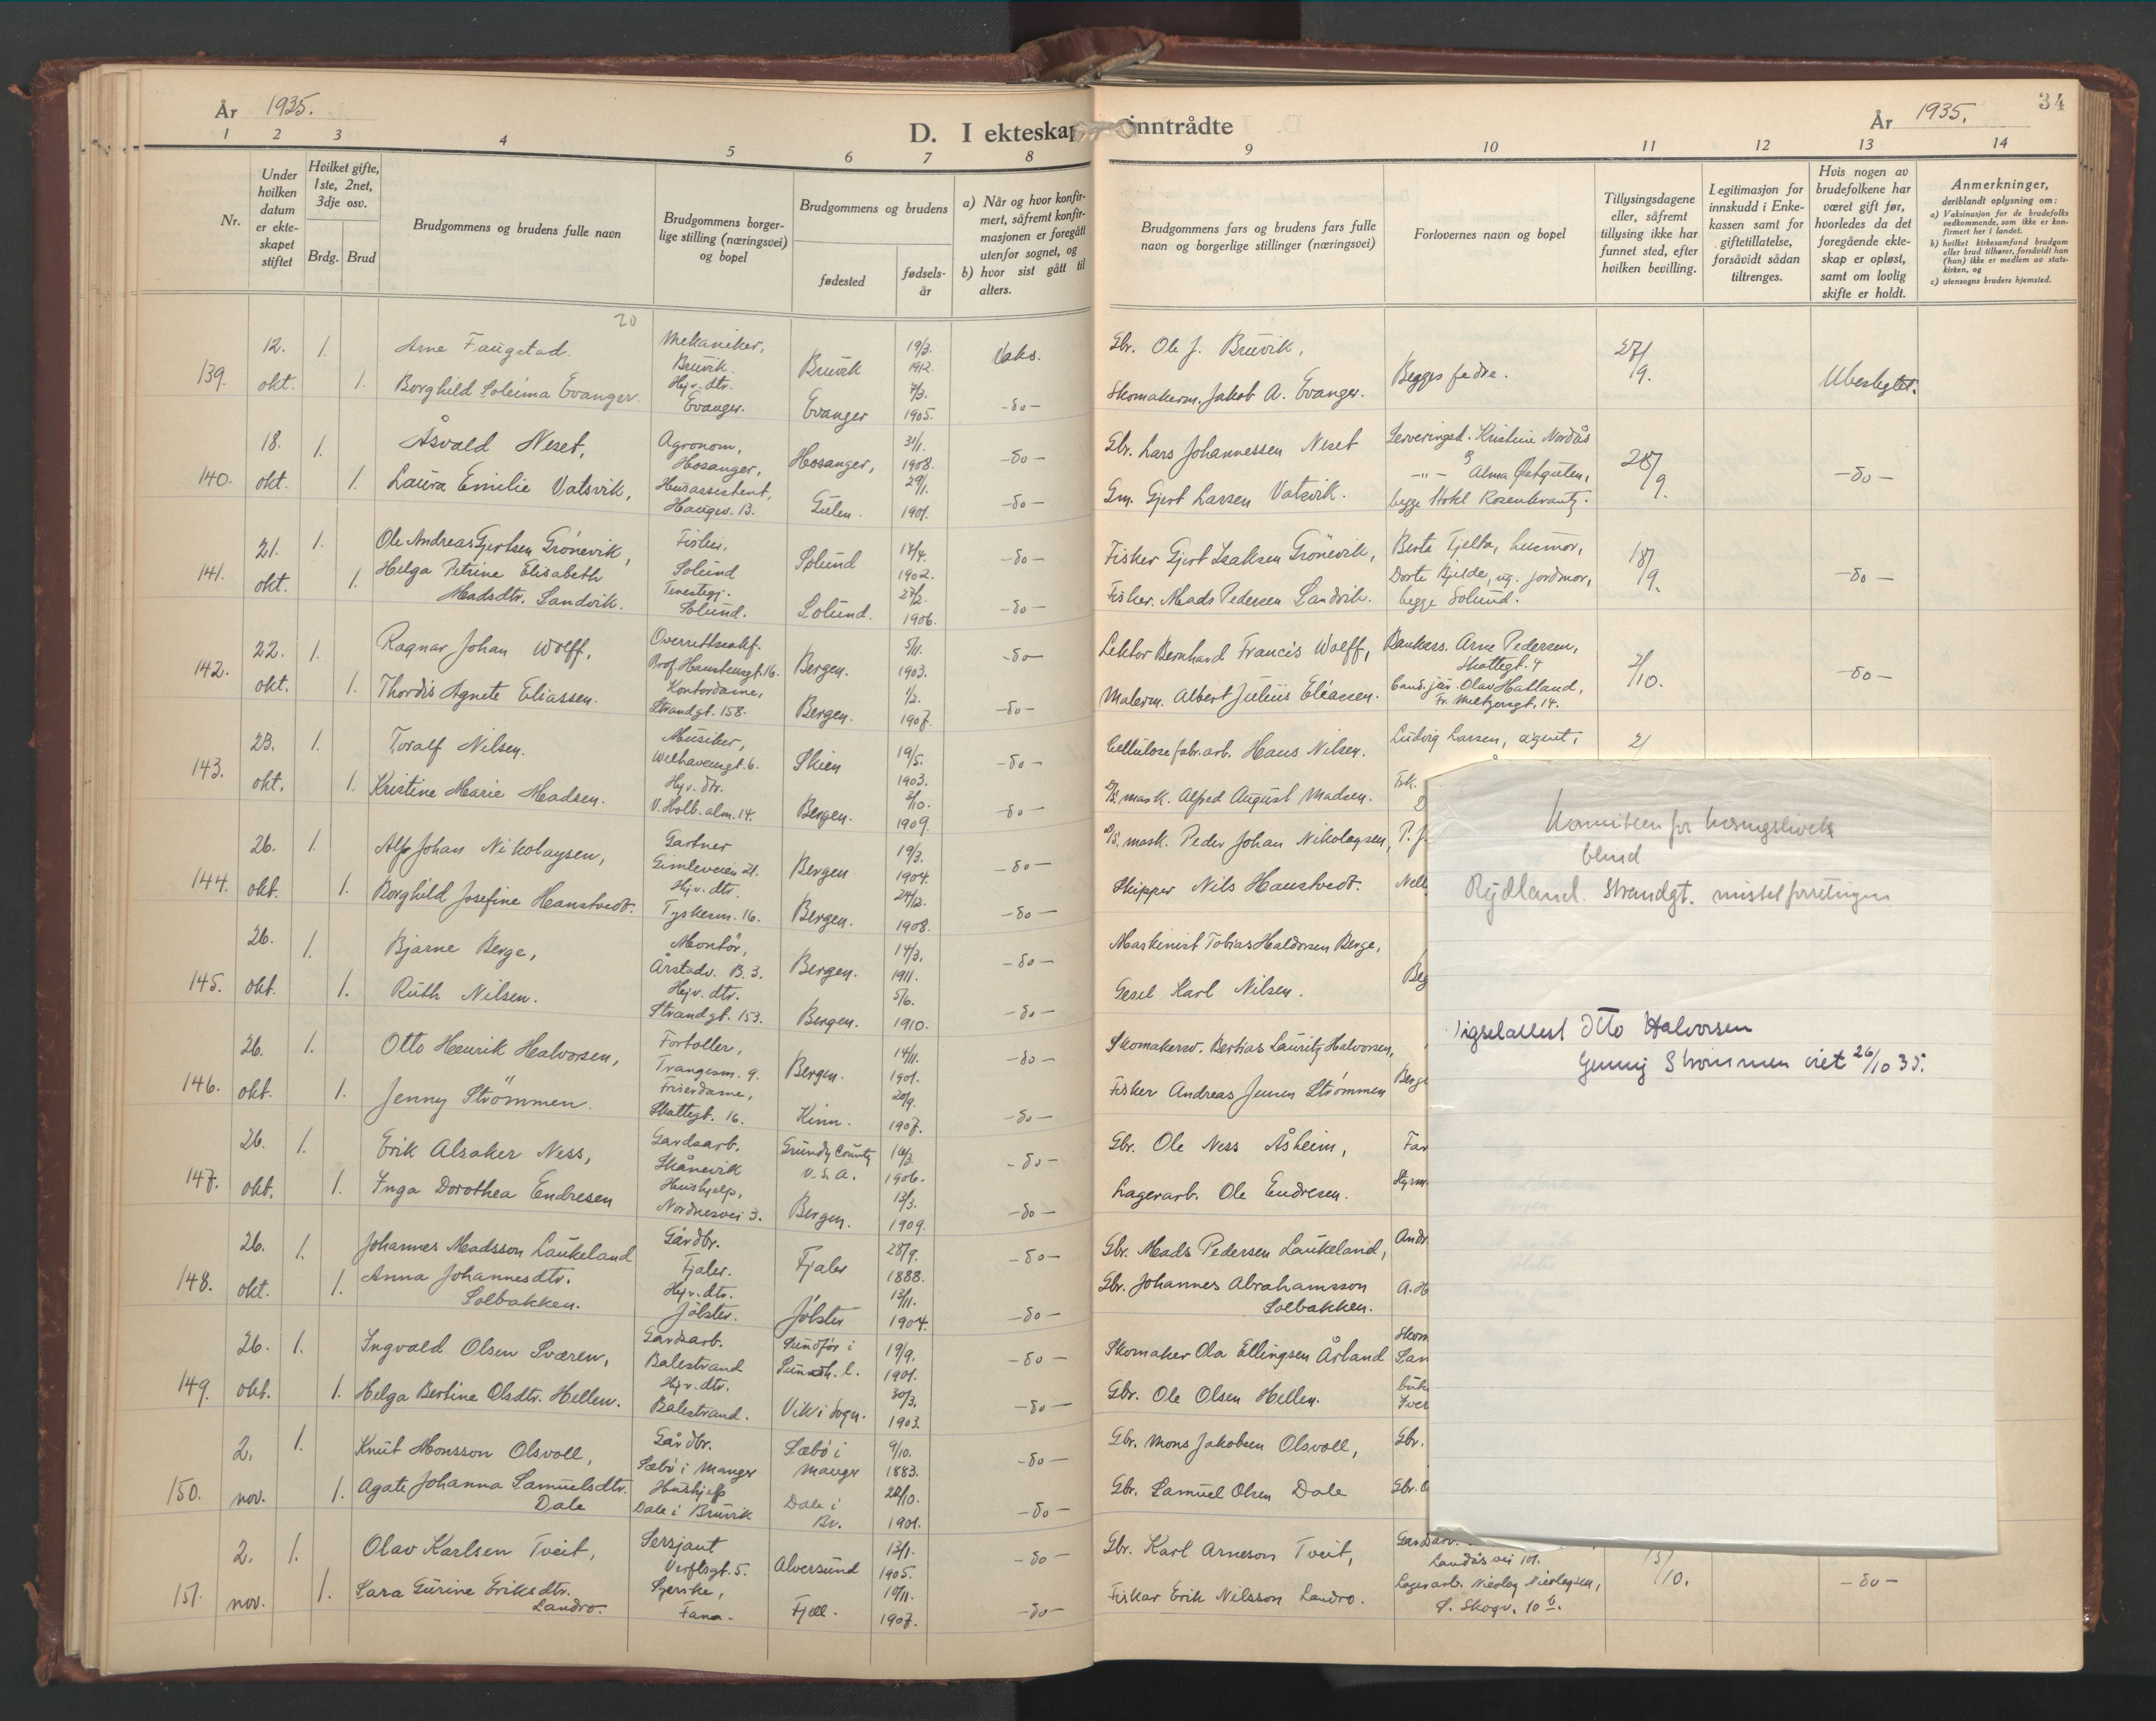 34
År 1935.
D. I ekteskap inntrådte
År 1935.
1 2 3 4 5 6 7 8 9 10 11 12 13 14
Nr.
Under hvilken datum er ekte-skapet stiftet
Hvilket gifte, 1ste, 2net, 3dje osv.
Brdg. Brud
Brudgommens og brudens fulle navn
Brudgommens borger-lige stilling (næringsvei) og bopel
Brudgommens og brudens
fødested
fødsels-år
a) Når og hvor konfir-mert, såfremt konfir-masjonen er foregått utenfor sognet, og
b) hvor sist gått til alters.
Brudgommens fars og brudens fars fulle navn og borgerlige stillinger (næringsvei)
Forlovernes navn og bopel
Tillysingsdagene eller, såfremt tillysing ikke har funnet sted, efter hvilken bevilling.
Legitimasjon for innskudd i Enke-kassen samt for giftetillatelse, forsåvidt sådan tiltrenges.
Hvis nogen av brudefolkene har været gift før, hvorledes da det foregående ekte-skap er opløst, samt om lovlig skifte er holdt.
Anmerkninger, deriblandt oplysning om:
a) Vaksinasjon for de brudefolks vedkommende, som ikke er kon-firmert her i landet.
b) hvilket kirkesamfund brudgom eller brud tilhører, forsåvidt han (hun) ikke er medlem av stats-kirken, og
c) utensogns bruders hjemsted.
20
139. 12. okt. 1. Arne Faugstad. Mekaniker, Bruvik. Bruvik 19/3. 1912. Vaks. Gbr. Ole J. Bruvik, Begges fedre. 27/9. Ubeslegtet.
1. Borghild Soleima Evanger. Hjv. dtr. Evanger. Evanger 7/3. 1905. -do- Skomakerm. Jakob A. Evanger.
140. 18. okt. 1. Åsvald Neset, Agronom, Hosanger, Hosanger, 31/1. 1908. -do- Gbr. Lars Johannessen Neset Serveringsd. Kristine Nordås 28/9. -do-
1. Laura Emilie Vatsvik, Husassistent, Haugev. 13. Gulen. 29/1. 1901. -do- Gm. Gjert Larsen Vatsvik. -"- Alma Østgulen, begge Hotel Rosenkrantz.
141. 21. okt. 1. Ole Andreas Gjertsen Grönevik, Fisker, Solund Solund 17/4. 1902. -do- Fisker Gjert Isaksen Grönevik, Berta Tjelta, husmor, 18/9. -do-
1. Helga Petrine Elisabeth Madsdtr. Sandvik. Tenestegj. Solund. Solund. 27/2. 1906. -do- Fisker. Mads Pedersen Sandvik. Dorte Gjelde, ug. jordmor, begge Solund.
142. 22. okt. 1. Ragnar Johan Wolff, Overrettssakf. Prof. Hansteensgt. 16. Bergen. 5/11. 1903. -do- Lektor Bernhard Francis Wolff, Bankass. Arne Pedersen, Skottegt. 4 2/10. -do-
1. Thordis Agnete Eliassen. Kontordame, Strandgt. 158. Bergen. 1/2. 1907. -do- Malerm. Albert Julius Eliassen. Cand. jur. Olav Hatland, Fr. Meltzersgt. 14.
143. 23. okt. 1. Toralf Nilsen. Musiker, Welhavensgt. 6. Skien 19/5. 1903. -do- Cellulosefabr.arb. Hans Nilsen. Ludvig Larsen, agent, 2/
1. Kristine Marie Madsen. Hjv. dtr. V. Holb. alm. 14. Bergen. 2/10. 1909. -do- D/S. mask. Alfred August Madsen. Frk.
144. 26. okt. 1. Alf Johan Nikolaysen, Gartner Gimleveien 21. Bergen 19/3. 1904. -do- D/S. mask. Peder Johan Nikolaysen, P. J.
1. Borghild Josefine Hanstvedt. Hjv. dtr. Tyskesm. 16. Bergen. 24/12. 1908. -do- Skipper Nils Hanstvedt. Nell
145. 26. okt. 1. Bjarne Berge, Montör, Årstadv. B. 3. Bergen. 14/3. 1911. -do- Maskinist Tobias Haldorsen Berge, Beg
1. Ruth Nilsen. Hjv. dtr. Strandgt. 153. Bergen. 5/6. 1910. -do- Gesel Karl Nilsen.
146. 26. okt. 1. Otto Henrik Halvorsen, Fortoller, Trangesm. 9. Bergen. 14/11. 1901. -do- Skomakersv. Bertias Lauritz Halvorsen, Berge
1. Jenny Strömmen. Friserdame, Skottegt. 16. Kinn. 20/9. 1907. -do- Fisker Andreas Jensen Strömmen
147. 26. okt. 1. Erik Alsaker Ness, Gardsarb. Skånevik Grundy County U.S.A. 16/2. 1906. -do- Gbr. Ole Ness Åsheim, Far
1. Inga Dorothea Endresen Hushjelp, Nordnesvei 3. Bergen. 13/3. 1909. -do- Lagerarb. Ole Endresen. Styrm.
148. 26. okt. 1. Johannes Madsson Laukeland Gårdbr. Fjaler. Fjaler 28/9. 1888. -do- Gbr. Mads Pedersen Laukeland, Andr
1. Anna Johannesdtr. Solbakken. Hjv. dtr. Jölster. Jölster 13/11. 1904. -do- Gbr. Johannes Abrahamsson Solbakken. A. H
149. 26. okt. 1. Ingvald Olsen Sværen, Gardsarb. Balestrand 19/9. 1901. -do- Skomaker Ola Ellingsen Årland Skom
1. Helga Bertine Olsdtr. Hellen. Hjv. dtr. Balestrand. Vik i Sogn. 30/3. 1903. -do- Gbr. Ole Olsen Hellen.
150. 2. nov. 1. Knut Monsson Olsvoll, Gårdbr. Sæbö i Manger Sæbö i Manger 9/10. 1883. -do- Gbr. Mons Jakobsen Olsvoll, Gbr.
1. Agate Johanna Samuelsdtr. Dale Hushjelp Dale i Bruvik Dale i Br. 28/10. 1901. -do- Gbr. Samuel Olsen Dale Gbr.
151. 2. nov. 1. Olav Karlsen Tveit, Sersjant Verftsgt. 5. Alversund 13/1. 1905. -do- Gbr. Karl Arneson Tveit, Gardsarb. Landåsvei 101. 13/10. -do-
1. Sara Gurine Eriksdtr. Landro. Syerske, Fana. Fjell. 19/11. 1907. -do- Fiskar Erik Nilsson Landro. Lagerarb. Nicolay Nicolaysen, S. Skogv. 10 b.
Komiteen for
blind
Rydland. Strandgt.
igselattest Otto Halvorsen
Jenny Strømmen viet 26/10 35.